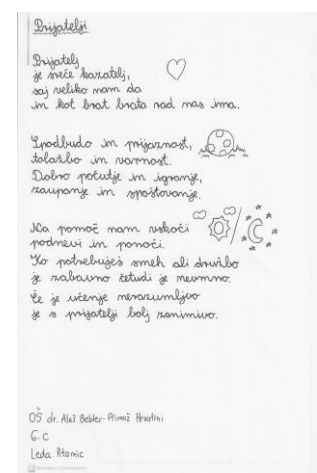 Prijatelji
Prijatelj
je sreče kazatelj,
saj veliko nam da
in kot brat brata rad nas ima.
Spodbudo in prijaznost,
tolažbo in varnost.
Dobro počutje in igranje,
zaupanje in spoštovanje.
Na pomoč nam vskoči
podnevi in ponoči.
Ko potrebuješ smeh ali družbo
je zabavno četudi je neumno.
Če je učenje nerazumljivo
je s prijatelji bolj zanimivo.
OŠ dr. Aleš Bebler-Primož Hrvatini
6. C
Leda